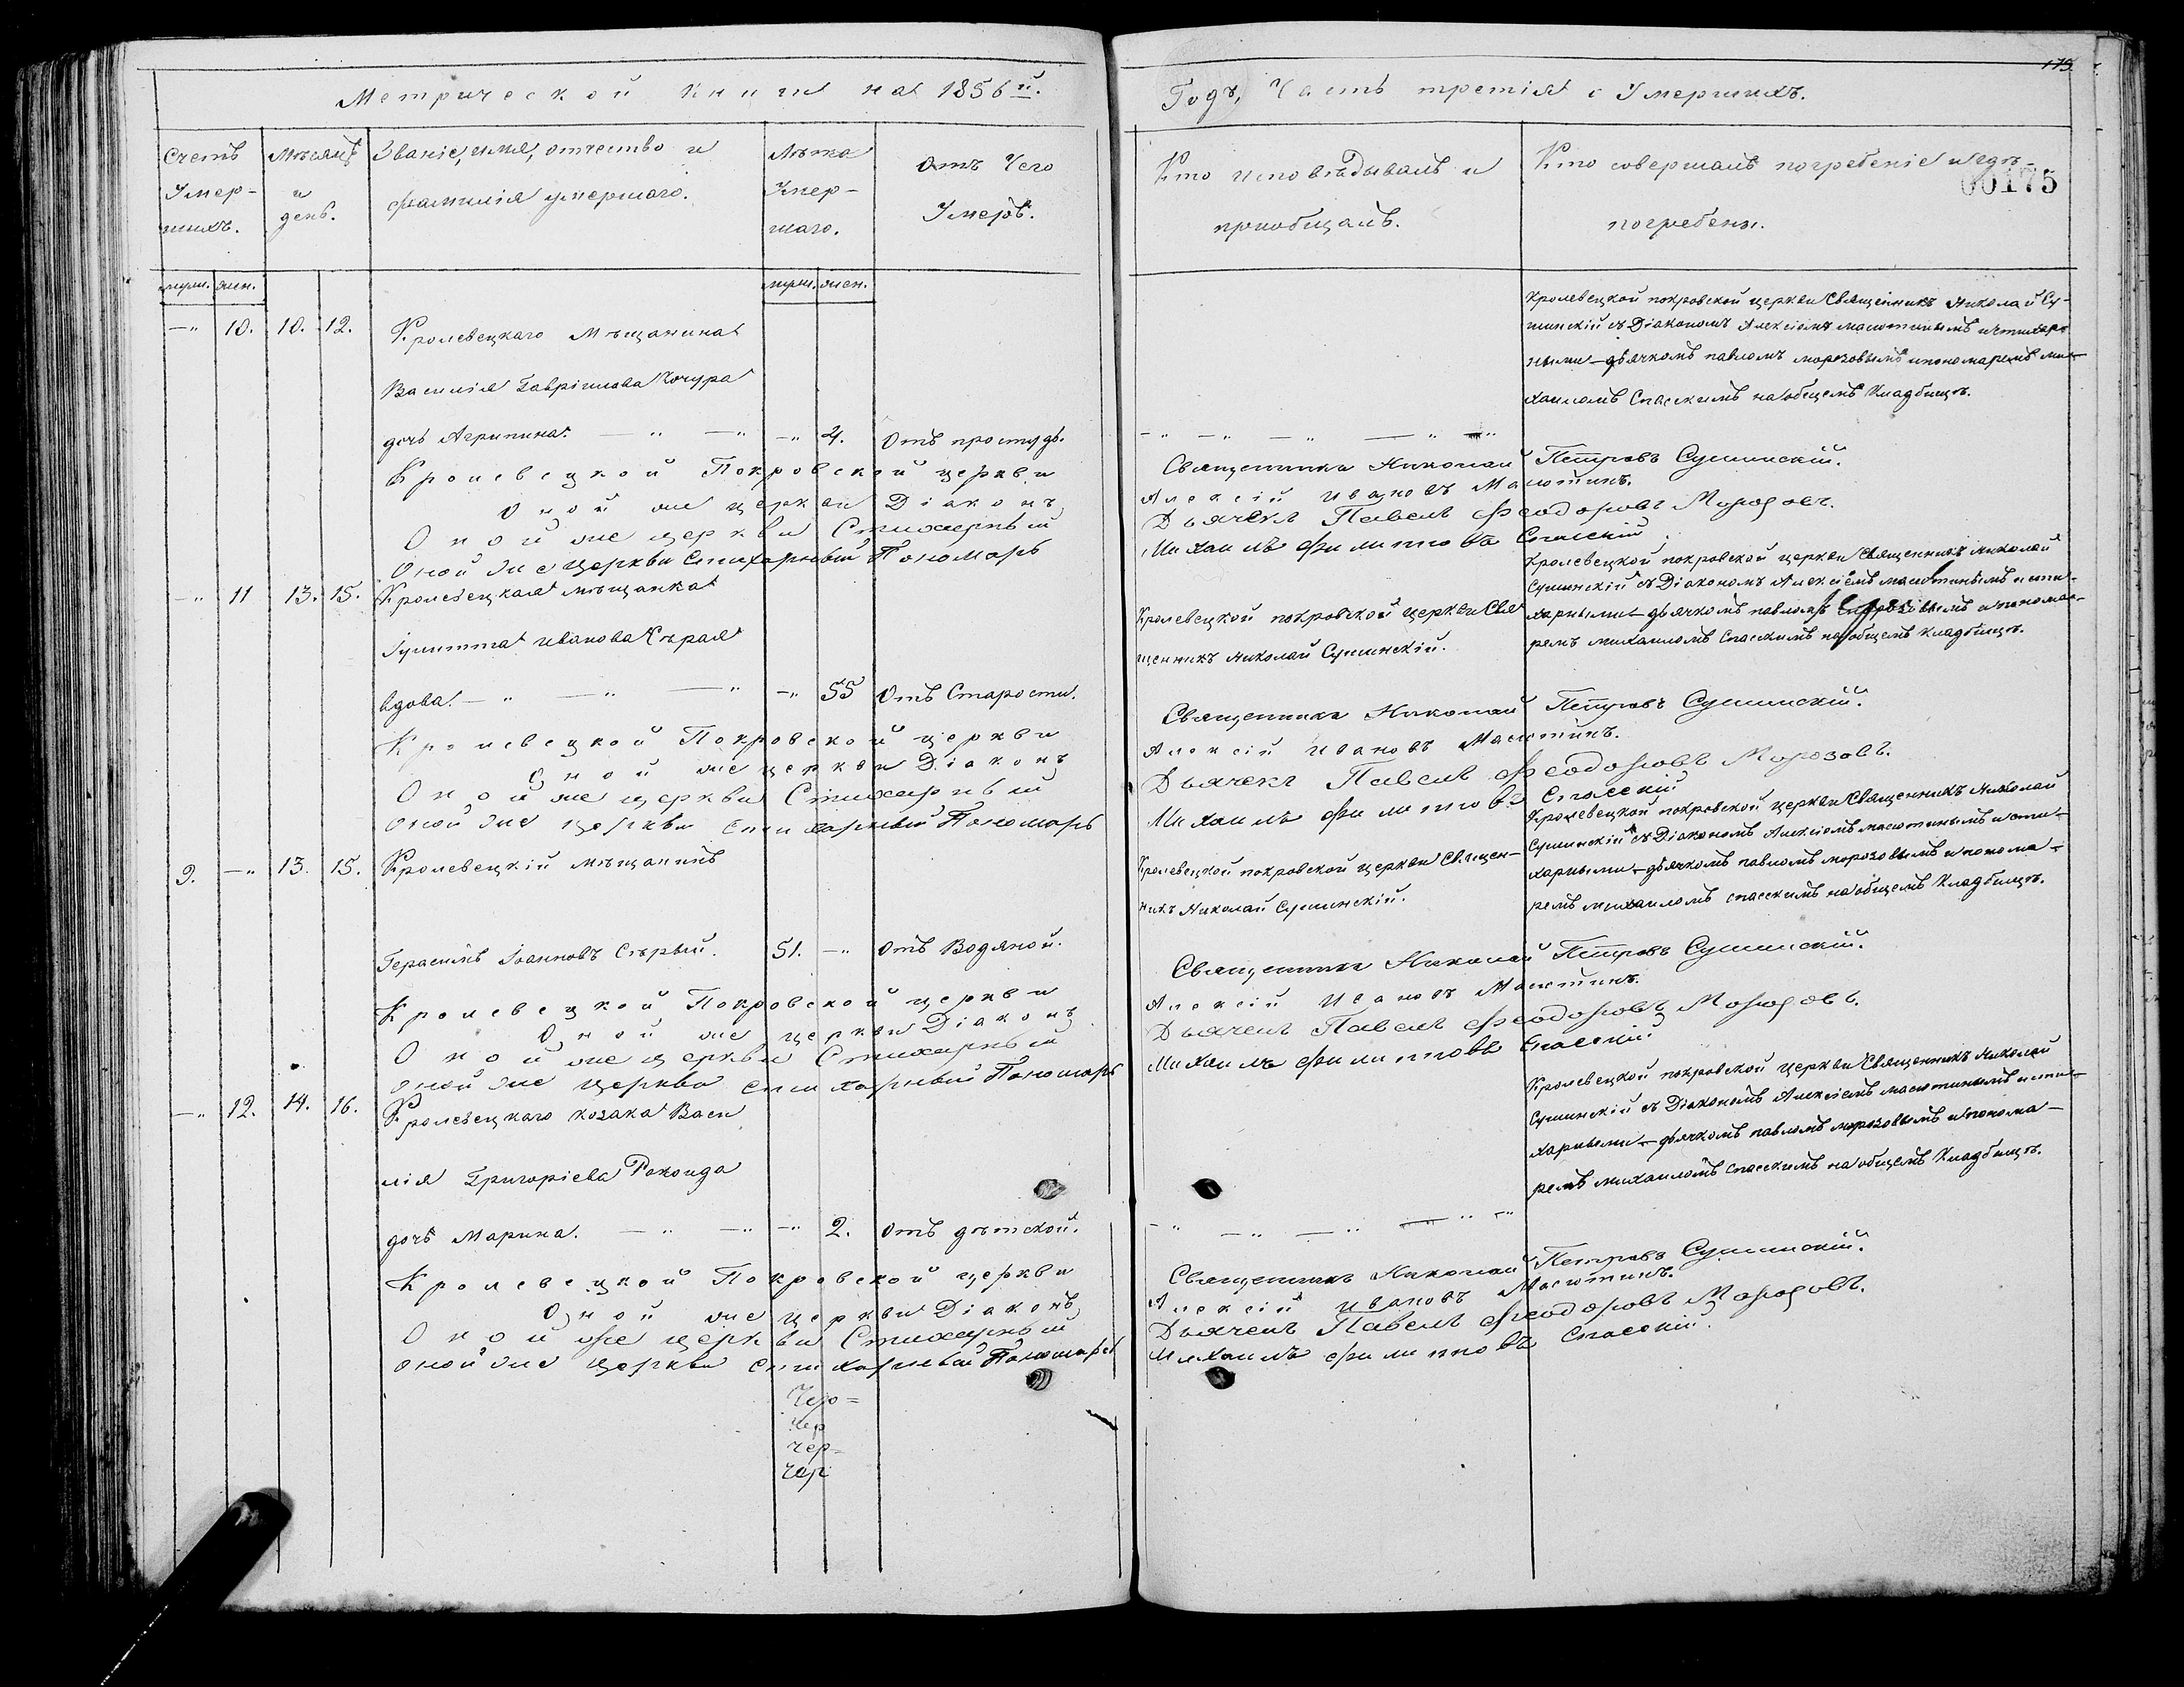 Метрической книги на 1856й.
Счетъ Умер-шихъ.
Мѣсяцъ и день.
Званіе, имя, отчество и фамилія умершаго.
Лѣта Умер-шаго.
Отъ Чего Умеръ.
муж. жен.
муж. жен.
—" 10. 10. 12. Кролевецкаго Мѣщанина
Василія Гавріилова Кочура
дочь Агрипина. — " —" —" 4. Отъ простуды.
Кролевецкой Покровской церкви
Оной же церкви Діаконъ
Оной же церкви Стихарный
Оной же церкви Стихарный Пономарь
—" 11 13. 15. Кролевецкая мѣщанка
Іулитта Иванова Сѣрая
вдова. — " — " — " —" 55 Отъ Старости.
Кролевецкой Покровской церкви
Оной же церкви Діаконъ
Оной же церкви Стихарный
Оной же церкви Стихарный Пономарь
9. —" 13. 15. Кролевецкій мѣщанинъ
Герасимъ Іоанновъ Сѣрый. 51. —" Отъ Водяной.
Кролевецкой Покровской церкви
Оной же церкви Діаконъ
Оной же церкви Стихарный
Оной же церкви Стихарный Пономарь
—" 12. 14. 16. Кролевецкаго козака Васи
лія Григоріева
дочь Марина. — " —" —" 2. Отъ дѣтской.
Кролевецкой Покровской церкви
Оной же церкви Діаконъ
Оной же церкви Стихарный
Оной же церкви Стихарный Пономарь
Чер=
Чер
Чер=
Чер
175
Годъ, Часть третія о Умершихъ.
Кто исповѣдывалъ и пріобщалъ.
Кто совершалъ погребеніе и гдѣ погребены.
00175
Кролевецкой покровской церкви Священникъ Николай Су-
шинскій съ Діакономъ Алексіемъ Масютинымъ и стихар
ными — дьячкомъ павломъ морозовымъ и пономаремъ ми-
хаиломъ Спасскимъ на общемъ Кладбищѣ.
—" —" — " — " —"
Священникъ Николай Петровъ Сушинскій.
Алексій Ивановъ Масютинъ.
Дьячекъ Павелъ Феодоровъ Морозовъ.
Михаилъ Филипповъ Спасскій
Кролевецкой покровской церкви Священникъ Николай
Сушинскій съ Діакономъ Алексіемъ масютинымъ и сти-
Кролевецкой покровской церкви Свя
харными — дьячкомъ павломъ морозовымъ и понома-
щенникъ Николай Сушинскій.
ремъ михаиломъ Спасскимъ на общемъ кладбищѣ.
Священникъ Николай Петровъ Сушинскій.
Алексій Ивановъ Масютинъ.
Дьячекъ Павелъ Феодоровъ Морозовъ.
Михаилъ Филипповъ Спасскій
Кролевецкой покровской церкви Священникъ Николай
Сушинскій съ Діакономъ Алексіемъ масютинымъ и сти-
Кролевецкой покровской церкви Священ-
харными — дьячкомъ павломъ морозовымъ и понома-
никъ Николай Сушинскій.
ремъ михаиломъ спасскимъ на общемъ Кладбищѣ.
Священникъ Николай Петровъ Сушинскій.
Алексій Ивановъ Масютинъ.
Дьячекъ Павелъ Феодоровъ Морозовъ.
Михаилъ Филипповъ Спасскій
Кролевецкой покровской церкви Священникъ Николай
Сушинскій съ Діакономъ Алексіемъ масютинымъ и сти-
харными — дьячкомъ павломъ морозовымъ и понома-
ремъ михаиломъ спасскимъ на общемъ Кладбищѣ.
—" —" — " — " —"
Священникъ Николай Петровъ Сушинскій.
Алексій Ивановъ Масютинъ.
Дьячекъ Павелъ Феодоровъ Морозовъ.
Михаилъ Филипповъ Спасскій.